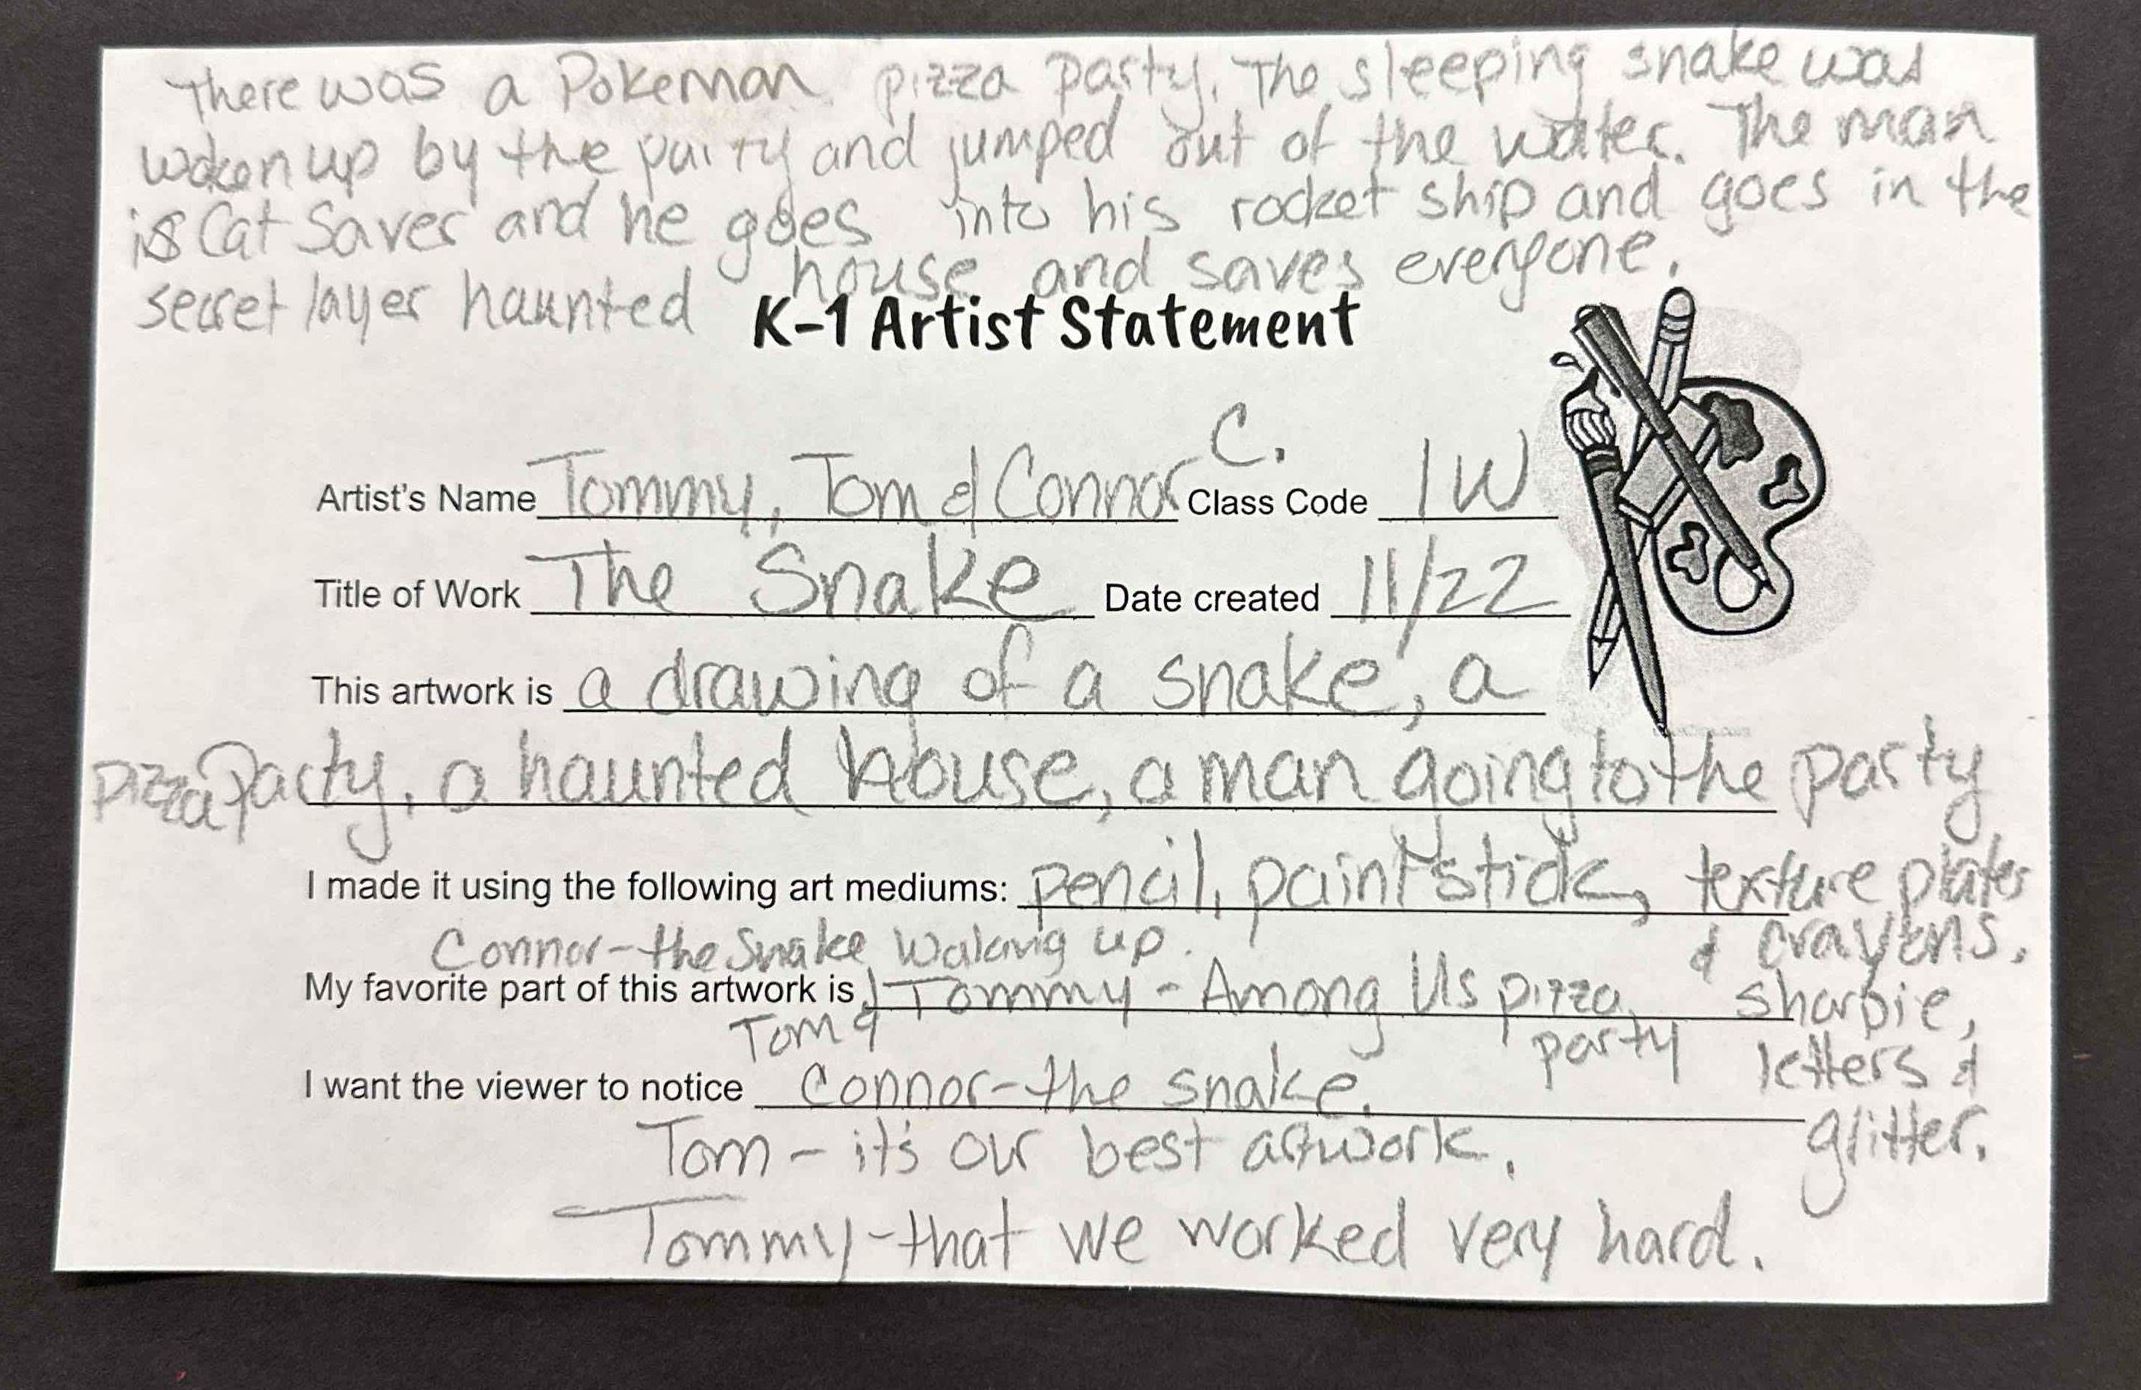 There was a Pokemon pizza party. The sleeping snake was
woken up by the party and jumped out of the water. The man
is Cat Saver and he goes into his rocket ship and goes in the
secret layer haunted house and saves everyone.
K-1 Artist Statement
Artist's Name Tommy, Tom & Connor C. Class Code 1W
Title of Work The Snake Date created 11/22
This artwork is a drawing of a snake, a
pizza party, a haunted house, a man going to the party
I made it using the following art mediums: pencil, paint stick, texture plates
& crayons,
sharpie,
letters &
glitter.
Connor-the Snake Waking up.
My favorite part of this artwork is Tommy - Among Us pizza
party
Tom &
I want the viewer to notice Connor-the snake.
Tom - it's our best artwork.
Tommy-that we worked very hard.